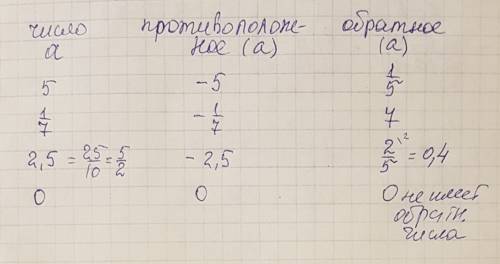 число противополож-
а ное (а) обратное (а)
5 −5 1/5
1/7 −1/7 7
2,5 = 25/10 = 5/2 −2,5 2/5 \2 = 0,4
0 0 0 не имеет
обратн.
числа